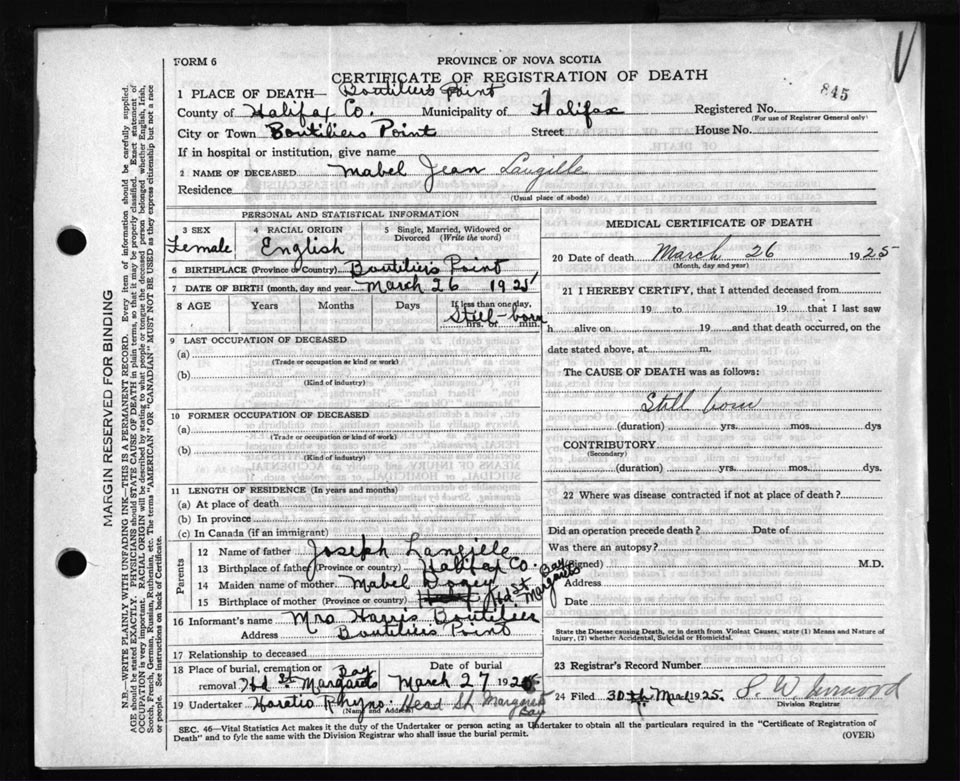 FORM 6
PROVINCE OF NOVA SCOTIA
CERTIFICATE OF REGISTRATION OF DEATH
845
1 PLACE OF DEATH— Boutiliers Point
County of Halifax Co. Municipality of Halifax Registered No.
(For use of Registrar General only)
City or Town Boutiliers Point Street House No.
If in hospital or institution, give name
2 NAME OF DECEASED Mabel Jean Langille
Residence
(Usual place of abode)
PERSONAL AND STATISTICAL INFORMATION
3 SEX 4 RACIAL ORIGIN 5 Single, Married, Widowed or Divorced (Write the word)
Female English
6 BIRTHPLACE (Province or Country) Boutiliers Point
7 DATE OF BIRTH (month, day and year) March 26 1925
8 AGE Years Months Days If less than one day,
hrs. or min.
Still-born
9 LAST OCCUPATION OF DECEASED
(a)
(Trade or occupation or kind or work)
(b)
(Kind of industry)
10 FORMER OCCUPATION OF DECEASED
(a)
(Trade or occupation or kind of work)
(b)
(Kind of industry)
11 LENGTH OF RESIDENCE (In years and months)
(a) At place of death
(b) In province
(c) In Canada (if an immigrant)
Parents
12 Name of father Joseph Langille
13 Birthplace of father (Province or country) Halifax Co.
14 Maiden name of mother Mabel
15 Birthplace of mother (Province or country) Hd St Margarets Bay
16 Informant's name Mrs Harris Boutilier
Address Boutiliers Point
17 Relationship to deceased
18 Place of burial, cremation or removal Hd St Margarets Bay Date of burial March 27 1925
19 Undertaker Horatio Rhyno Head St Margarets Bay
(Name and Address)
MEDICAL CERTIFICATE OF DEATH
20 Date of death March 26 1925
(Month, day and year)
21 I HEREBY CERTIFY, that I attended deceased from
19 to 19 that I last saw
h alive on 19 and that death occurred, on the
date stated above, at m.
The CAUSE OF DEATH was as follows:
Still born
(duration) yrs. mos. dys
CONTRIBUTORY
(Secondary)
(duration) yrs. mos. dys.
22 Where was disease contracted if not at place of death?
Did an operation precede death? Date of
Was there an autopsy?
(Signed) M.D.
Address
Date
State the Disease causing Death, or in death from Violent Causes, state (1) Means and Nature of
Injury, (2) whether Accidental, Suicidal or Homicidal.
23 Registrar's Record Number
24 Filed 30th March 1925.
Division Registrar
SEC. 46—Vital Statistics Act makes it duty of the Undertaker or person acting as Undertaker to obtain all the particulars required in the "Certificate of Registration of
Death" and to fyle the same with the Division Registrar who shall issue the burial permit.
(OVER)
MARGIN RESERVED FOR BINDING
N.B.—WRITE PLAINLY WITH UNFADING INK—THIS IS A PERMANENT RECORD. Every item of information should be carefully supplied.
AGE should be stated EXACTLY. PHYSICIANS should STATE CAUSE OF DEATH in plain terms, so that it may be properly classified. Exact statement of
OCCUPATION is very important. RACIAL ORIGIN will be described by stating to what people or tongue the deceased person belonged whether English, Irish,
Scotch, French, German, Russian, Ruthenian, etc. The terms "AMERICAN" or "CANADIAN" MUST NOT BE USED as they express citizenship but not a race
or people. See instructions on back of Certificate.